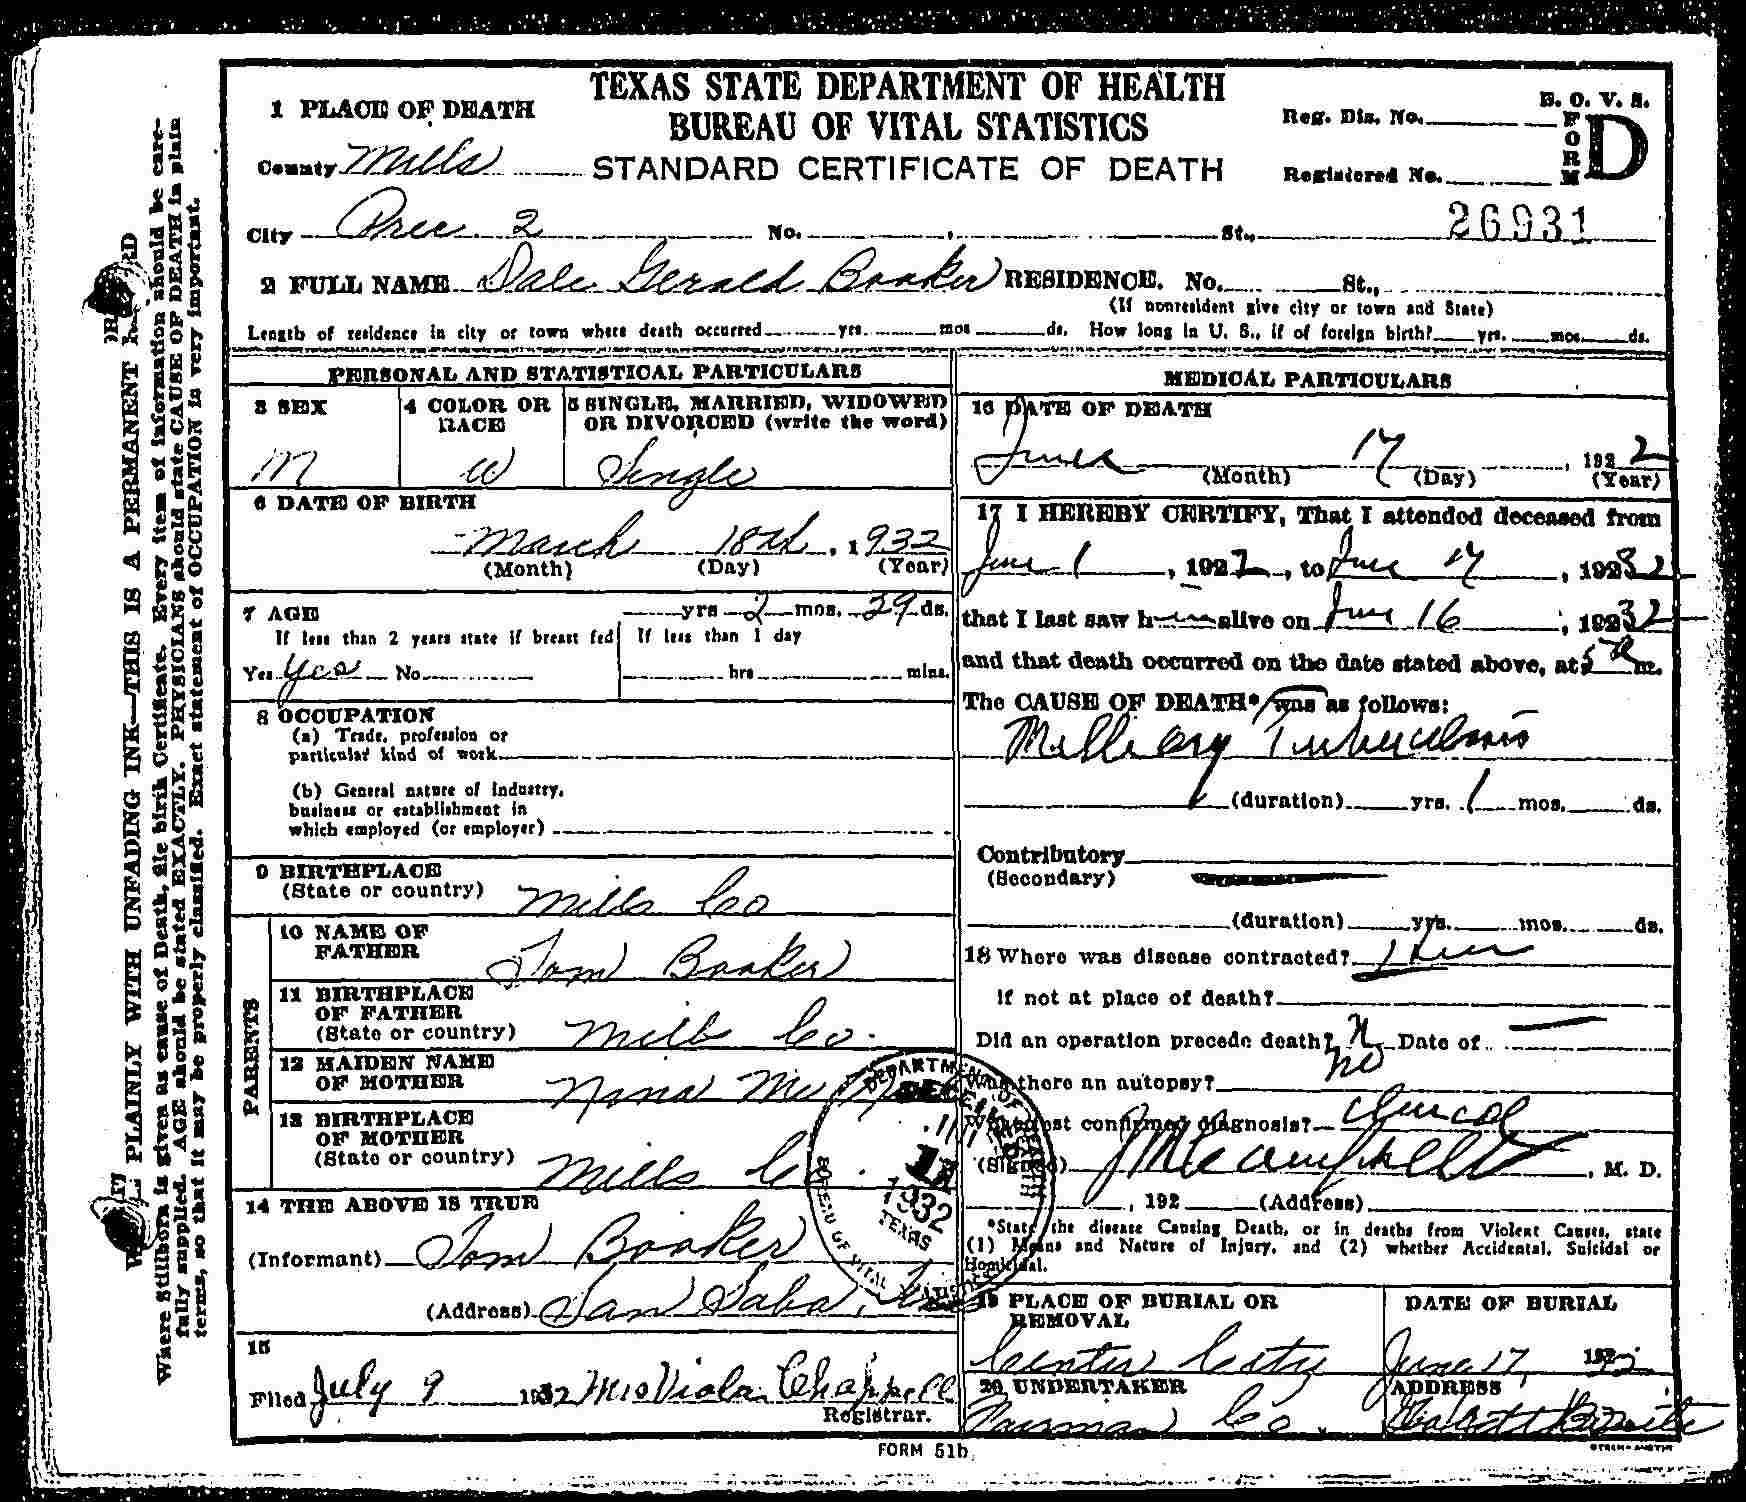 TEXAS STATE DEPARTMENT OF HEALTH
BUREAU OF VITAL STATISTICS
STANDARD CERTIFICATE OF DEATH
B. O. V. S.
FORM D
Reg. Dis. No.
Registered No.
26931
1 PLACE OF DEATH
County Mills
City Prec. 2 No. St.,
2 FULL NAME Dale Gerald Booker RESIDENCE. No. St.,
(If nonresident give city or town and State)
Length of residence in city or town where death occurred yrs. mos ds. How long in U. S., if of foreign birth? yrs. mos. ds.
PERSONAL AND STATISTICAL PARTICULARS
3 SEX
M
4 COLOR OR RACE
W
5 SINGLE, MARRIED, WIDOWED
OR DIVORCED (write the word)
Single
6 DATE OF BIRTH
March 18th, 1932
(Month) (Day) (Year)
7 AGE
yrs 2 mos. 29 ds.
If less than 2 years state if breast fed
Yes yes No
If less than 1 day
hrs mins.
8 OCCUPATION
(a) Trade, profession or
particular kind of work
(b) General nature of Industry,
business or establishment in
which employed (or employer)
9 BIRTHPLACE
(State or country) Mills Co
PARENTS
10 NAME OF
FATHER Tom Booker
11 BIRTHPLACE
OF FATHER
(State or country) Mills Co.
12 MAIDEN NAME
OF MOTHER Nina Mc
13 BIRTHPLACE
OF MOTHER
(State or country) Mills Co.
14 THE ABOVE IS TRUE
(Informant) Tom Booker
(Address) San Saba,
15
Filed July 9 1932 Mrs Viola Chappell
Registrar.
MEDICAL PARTICULARS
16 DATE OF DEATH
June 17, 1922
(Month) (Day) (Year)
17 I HEREBY CERTIFY, That I attended deceased from
June 1, 1922, to June 17, 19232
that I last saw him alive on June 16, 19232
and that death occurred on the date stated above, at 5 A m.
The CAUSE OF DEATH* was as follows:
Milliary Tuberculosis
(duration) yrs. 1 mos. ds.
Contributory
(Secondary)
(duration) yrs. mos. ds.
18 Where was disease contracted?
if not at place of death?
Did an operation precede death? N Date of
Was there an autopsy? no
What test confirmed diagnosis? clinical
(Signed) J M Campbell, M. D.
, 192 (Address)
*State the disease Causing Death, or in deaths from Violent Causes, state
(1) Means and Nature of Injury, and (2) whether Accidental, Suicidal or
Homicidal.
19 PLACE OF BURIAL OR
REMOVAL
Center City
DATE OF BURIAL
June 17, 1932
20 UNDERTAKER
Fairman Co.
ADDRESS
Goldthwaite
DEPARTMENT OF HEALTH
BUREAU OF VITAL STATISTICS
1932
TEXAS
FORM 51b
WRITE PLAINLY WITH UNFADING INK—THIS IS A PERMANENT RECORD
Where Stillborn is given as cause of Death, file birth Certificate. Every item of information should be care-
fully supplied. AGE should be stated EXACTLY. PHYSICIANS should state CAUSE OF DEATH in plain
terms, so that it may be properly classified. Exact statement of OCCUPATION is very important.